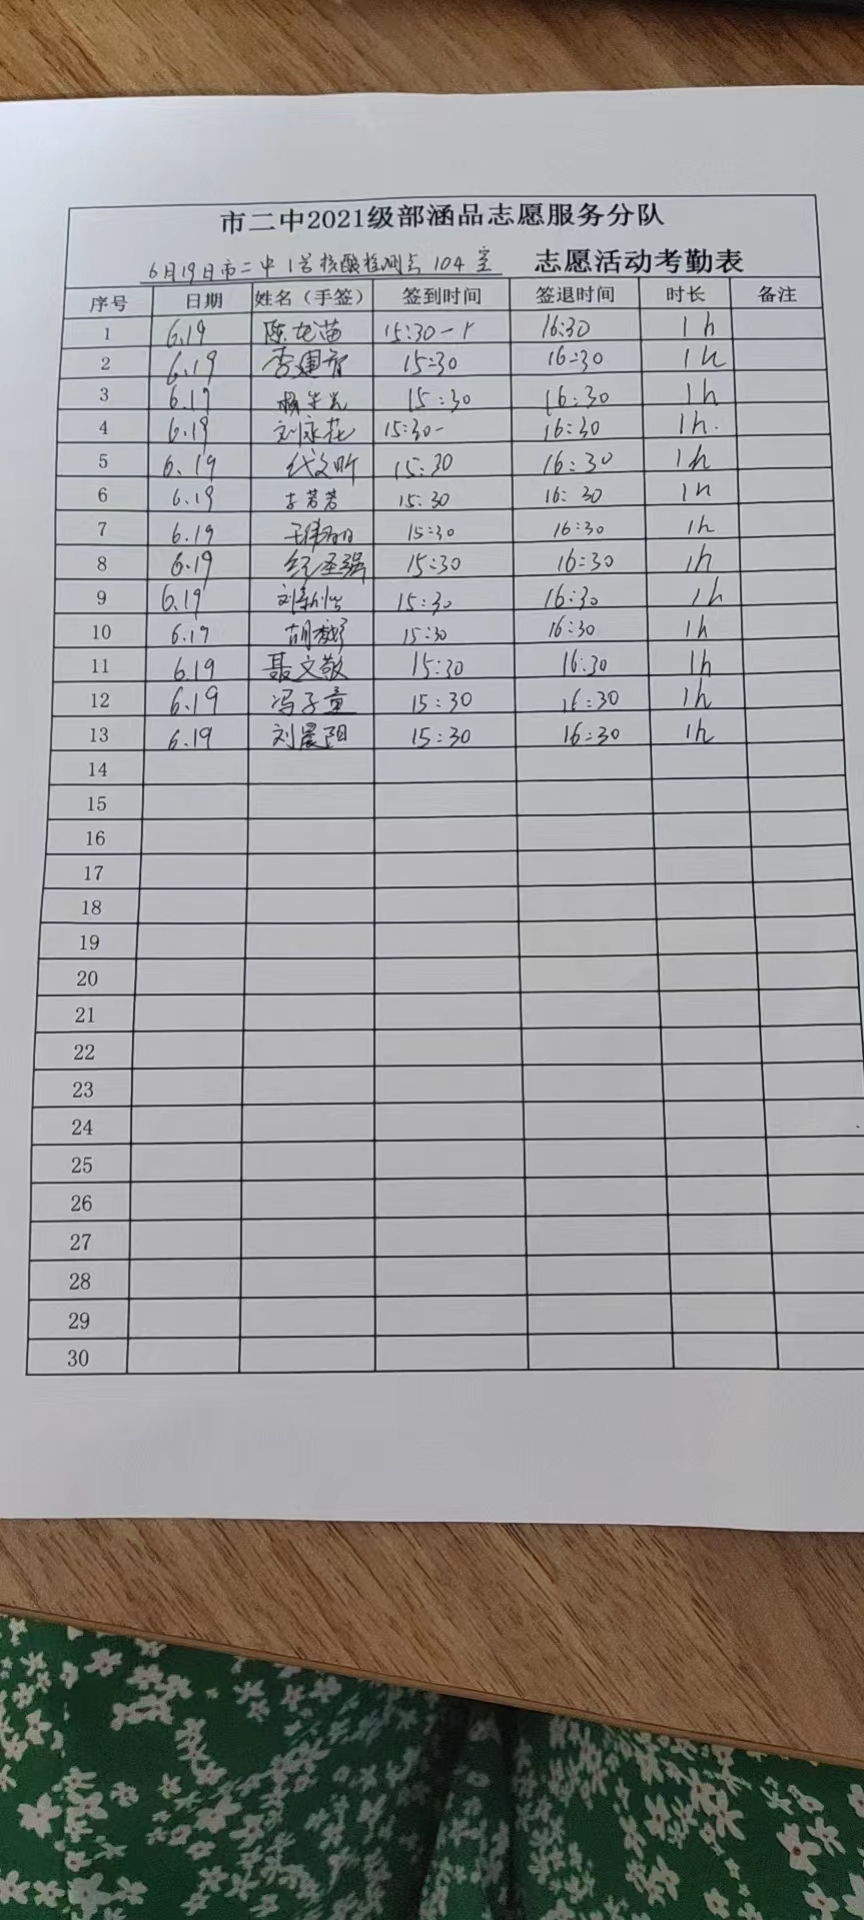 市二中2021级部涵品志愿服务分队
6月19日市二中1号核酸检测点104室 志愿活动考勤表
序号 日期 姓名（手签） 签到时间 签退时间 时长 备注
1 6.19 15:30- 16:30 1h
2 6.19 15:30 16:30 1h
3 6.19 15:30 16:30 1h
4 6.19 刘永花 15:30- 16:30 1h.
5 6.19 代文昕 15:30 16:30 1h
6 6.19 李芳芳 15:30 16:30 1h
7 6.19 15:30 16:30 1h
8 6.19 纪圣强 15:30 16:30 1h
9 6.19 15:30 16:30 1h
10 6.19 15:30 16:30 1h
11 6.19 聂文敬 15:30 16:30 1h
12 6.19 冯子童 15:30 16:30 1h
13 6.19 刘晨阳 15:30 16:30 1h
14
15
16
17
18
19
20
21
22
23
24
25
26
27
28
29
30